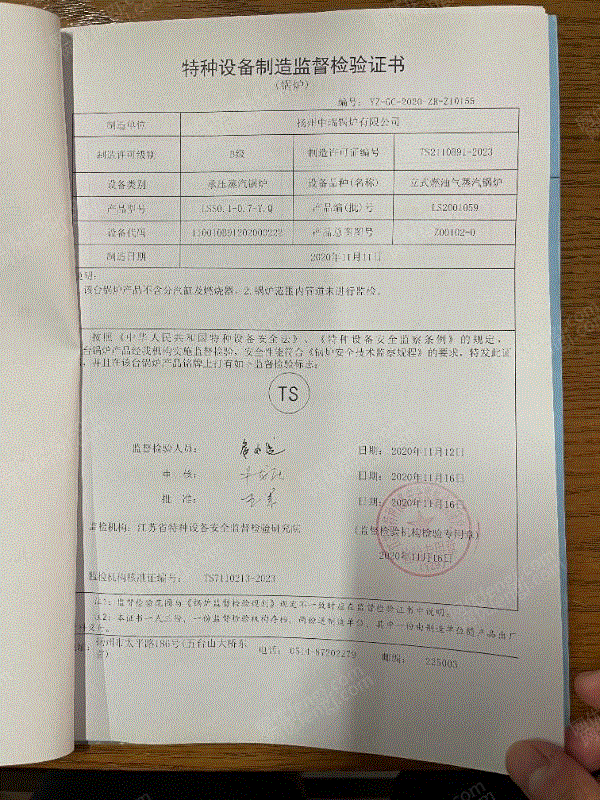 特种设备制造监督检验证书
(锅炉)
编号: YZ-GC-2020-ZR-Z10155
制造单位 扬州中瑞锅炉有限公司
制造许可级别 D级 制造许可证编号 TS2110B91-2023
设备类别 承压蒸汽锅炉 设备品种(名称) 立式燃油气蒸汽锅炉
产品型号 LSS0.1-0.7-Y.Q 产品编(批)号 LS2001059
设备代码 产品总图图号 Z00102-0
制造日期 2020年11月11日
说明:
该台锅炉产品不含分汽缸及燃烧器。2.锅炉范围内管道未进行监检。
按照《中华人民共和国特种设备安全法》、《特种设备安全监察条例》的规定,
台锅炉产品经我机构实施监督检验,安全性能符合《锅炉安全技术监察规程》的要求,特发此证
,并且在该台锅炉产品铭牌上打有如下监督检验标志:
TS
监督检验人员: 日期: 2020年11月12日
审 核: 日期: 2020年11月16日
批 准: 日期: 2020年11月16日
监检机构: 江苏省特种设备安全监督检验研究院 (监督检验机构检验专用章)
2020年11月16日
监检机构核准证编号: TS7110213-2023
注1: 监督检验范围与《锅炉监督检验规则》规定不一致时应在监督检验证书中说明。
注2: 本证书一式三份,一份监督检验机构存档,两份送制造单位,其中一份由制造单位随产品出厂
文件交付。
地址: 扬州市太平路186号(五台山大桥东 电话: 0514-87202279 邮编: 225003